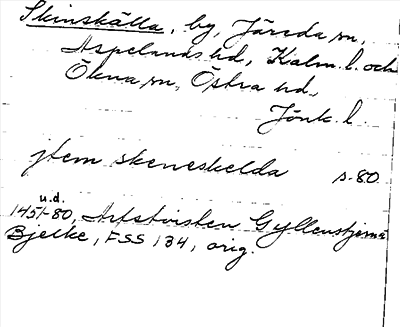 Skinskälla, by, Järeda sn,
Aspelands hd, Kalm. l. och
Ökna sn, Östra hd,
Jönk. l.
jtem skeneskelda s. 80
u.d.
1451-80, Avskriften Gyllenstjerna
Bjelke, FSS 134, orig.